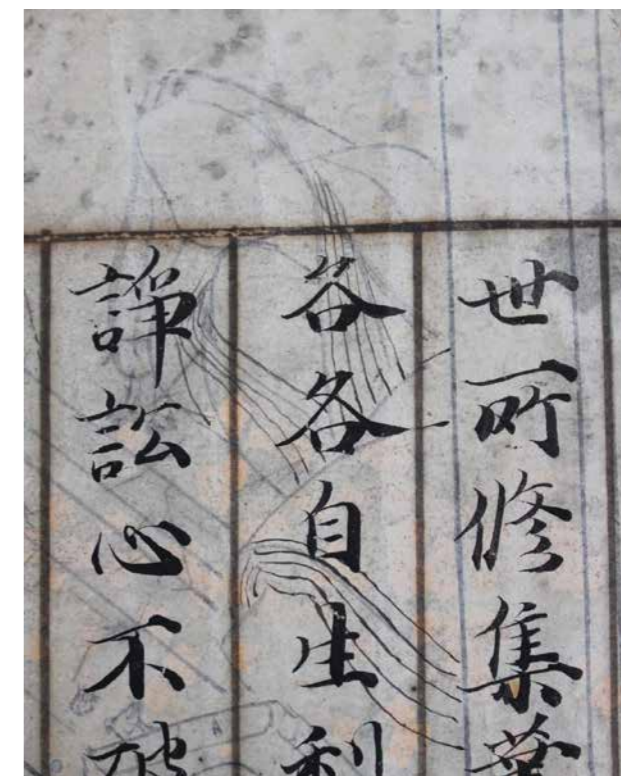 世所修集業
各各自生利
諍訟心不破